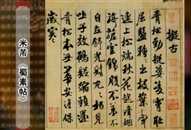 擬古
青松勁挺姿凌霄恥
屈盤種種出枝葉牽
連上松端秋花起絳
煙旖旎雲錦殷不羞
不自立舒光射丸丸柏見
吐子效鶴疑縮頸還
青松本無華安得保
歲寒
米芾《蜀素帖》